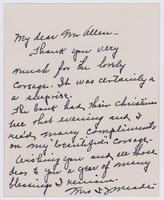 My dear Mr Allen –
Thank you very
much for the lovely
corsage. It was certainly
a surprise.
The bank had their Christmas
tree that evening and I
read many compliments
on my beautiful corsage.
Wishing you and all those
dear to you a year of many
blessings I remain
Mrs